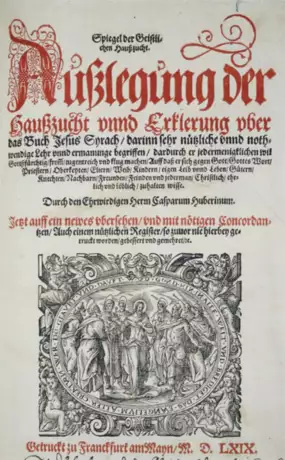 Spiegel der Geistli-
chen Haußzucht.
Außlegung der
Haußzucht vnnd Erklerung vber
das Buch Jesus Syrach / darinn sehr nützliche vnnd noth-
wendige Lehr vnnd ermanunge begriffen / dardurch er jedermenigklichen wil
Gottsförchtig / from̃, tugentreich vnd klug machen / Auff daß er sich gegen Gott / Gottes Wort /
Priestern / Oberkeyten / Eltern / Weib / Kindern / eigen Leib vnnd Leben / Gütern /
Knechten / Nachbaurn / Freunden / Feinden vnd jederman / Christlich / ehr-
lich vnd löblich / zuhalten wisse.
Durch den Ehrwirdigen Herrn Casparum Huberinum.
Jetzt auff ein newes vbersehen / vnd mit nötigen Concordan-
tzen / Auch einem nützlichen Register / so zuuor nie hierbey ge-
truckt worden / gebessert vnd gemehret / ꝛc.
Getruckt zu Franckfurt am Mayn / M. D. LXIX.